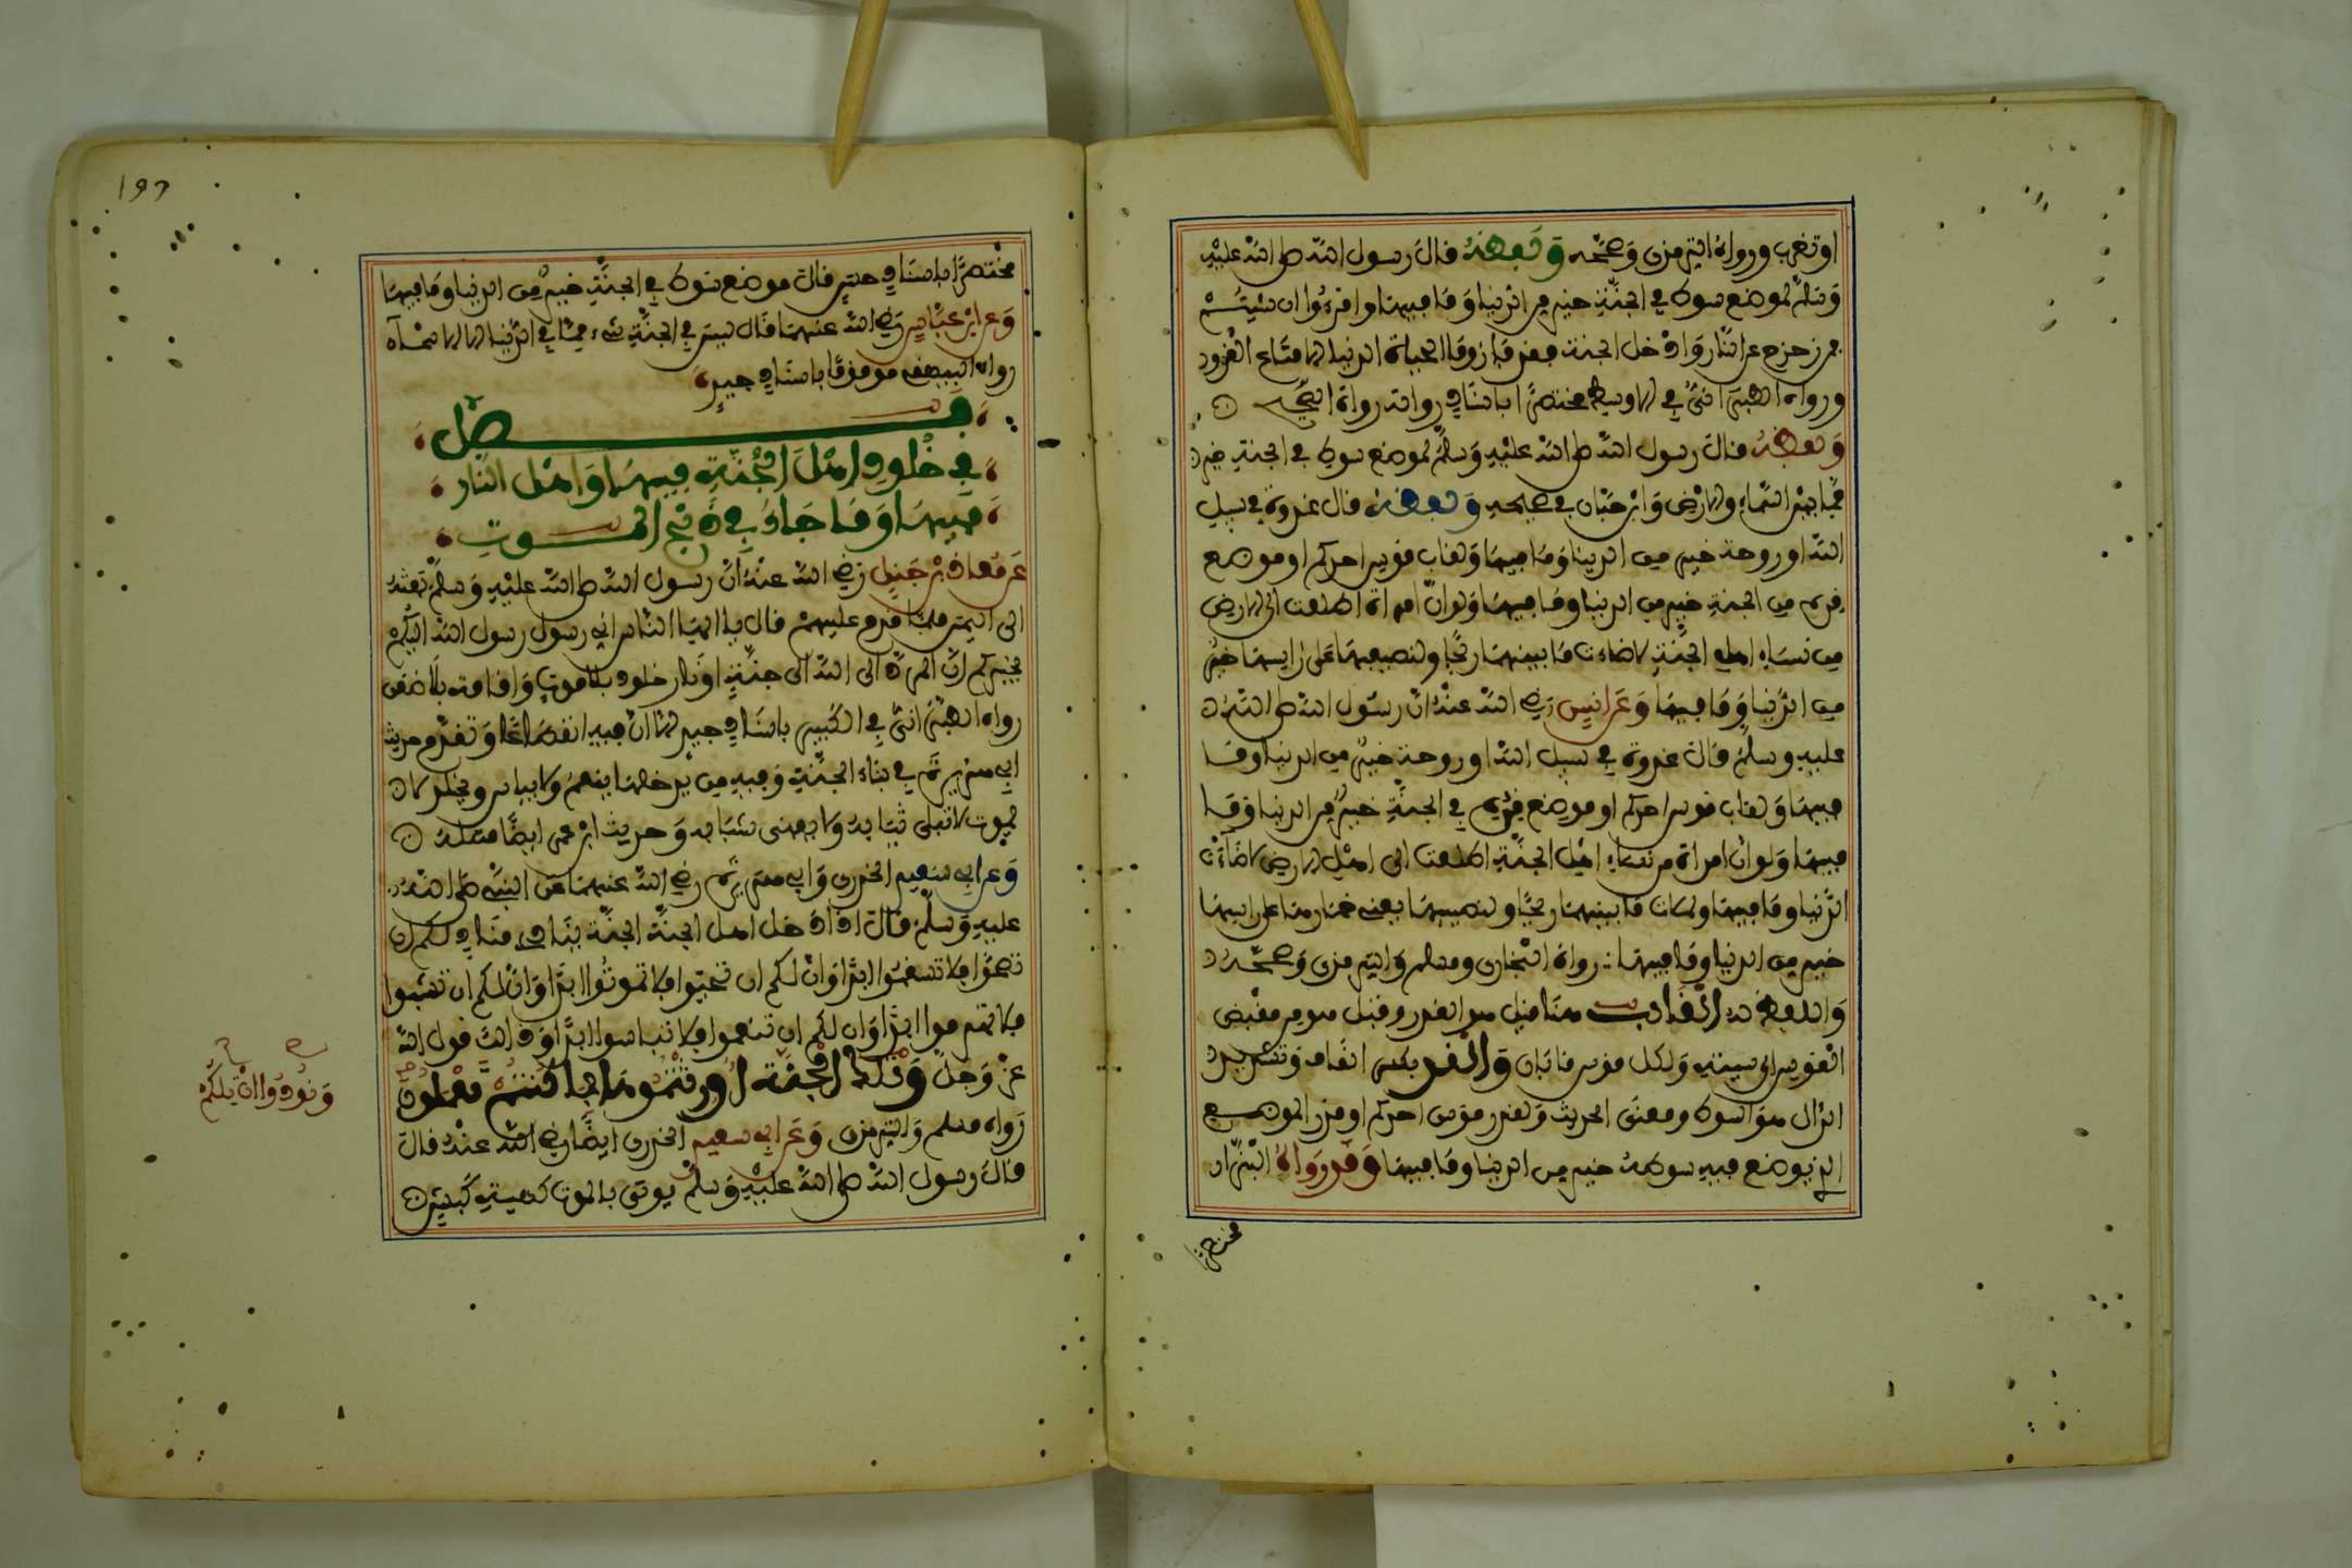 او تغرب ورواه الترمذي وصححه ولفظه قال رسول الله صلى الله عليه
وسلم لموضع سوط في الجنة خير من الدنيا وما فيها واقرءوا ان شيتم
فمن زحزح عن النار وادخل الجنة فقد فاز وما الحياة الدنيا الا متاع الغرور
ورواه الطبراني في الاوسط مختصرا باسناد رواته رواة الصحيح
ولفظه قال رسول الله صلى الله عليه وسلم لموضع سوط في الجنة خير
مما بين السماء والارض وابن حبان في صحيحه ولفظه قال غدوة في سبيل
الله او روحة خير من الدنيا وما فيها ولقاب قوس احدكم او موضع
قدم من الجنة خير من الدنيا وما فيها ولو ان امراة اطلعت الى الارض
من نساء اهل الجنة لاضاءت ما بينهما ريحا ولنصيفها على رايسها خير
من الدنيا وما فيها وعن انس رضي الله عنه ان رسول الله صلى الله
عليه وسلم قال غدوة في سبيل الله او روحة خير من الدنيا وما
فيها ولقاب قوس احدكم او موضع قدم في الجنة خير من الدنيا وما
فيها ولو ان امراة من نساء اهل الجنة اطلعت الى اهل الارض لاضاءت
الدنيا وما فيها ولملات ما بينهما ريحا ولنصيفها يعني خمارها على راسها
خير من الدنيا وما فيها رواه البخاري ومسلم والترمذي وصححه
واللفظ له القاب هنا قيل هو القدر وقيل هو من مقبض
القوس الى سيته ولكل قوس قابان والقد بكسر القاف وتشديد
الدال هو السوط ومعنى الحديث ولقدر قوس احدكم او قدر الموضع
الذي يوضع فيه سوطه خير من الدنيا وما فيها وقد رواه البزار
مختصرا
١٩٦
مختصرا باسناد حسن قال موضع سوط في الجنة خير من الدنيا وما فيها
وعن ابن عباس رضي الله عنهما قال ليس في الجنة شيء مما في الدنيا الا الاسماء
رواه البيهقي موقوفا باسناد جيد
فصل
في خلود اهل الجنة فيها واهل النار
فيها وما جاء في ذبح الموت
عن معاذ بن جبل رضي الله عنه ان رسول الله صلى الله عليه وسلم بعثه
الى اليمن فلما قدم عليهم قال يا ايها الناس اني رسول رسول الله اليكم
يخبركم ان المرد الى الله الى جنة او نار خلود بلا موت واقامة بلا ضعن
رواه الطبراني في الكبير باسناد جيد الا ان فيه انقطاعا وتقدم حديث
ابي هريرة في بناء الجنة وفيه من يدخلها ينعم ولا يباس ويخلد لا
يموت لا تبلى ثيابه ولا يفنى شبابه وحديث ابن عمر ايضا مثله
وعن ابي سعيد الخدري وابي هريرة رضي الله عنهما عن النبي صلى الله
عليه وسلم قال اذا دخل اهل الجنة الجنة ينادي مناد لكم ان
تصحوا فلا تسقموا ابدا وان لكم ان تحيوا فلا تموتوا ابدا وان لكم ان تشبوا
فلا تهرموا ابدا وان لكم ان تنعموا فلا تباسوا ابدا وذلك قول الله
عز وجل وتلك الجنة اورثتموها بما كنتم تعملون
رواه مسلم والترمذي وعن ابي سعيد الخدري ايضا رضي الله عنه قال
قال رسول الله صلى الله عليه وسلم يوتى بالموت كهيئة كبش
ونودوا ان تلكم